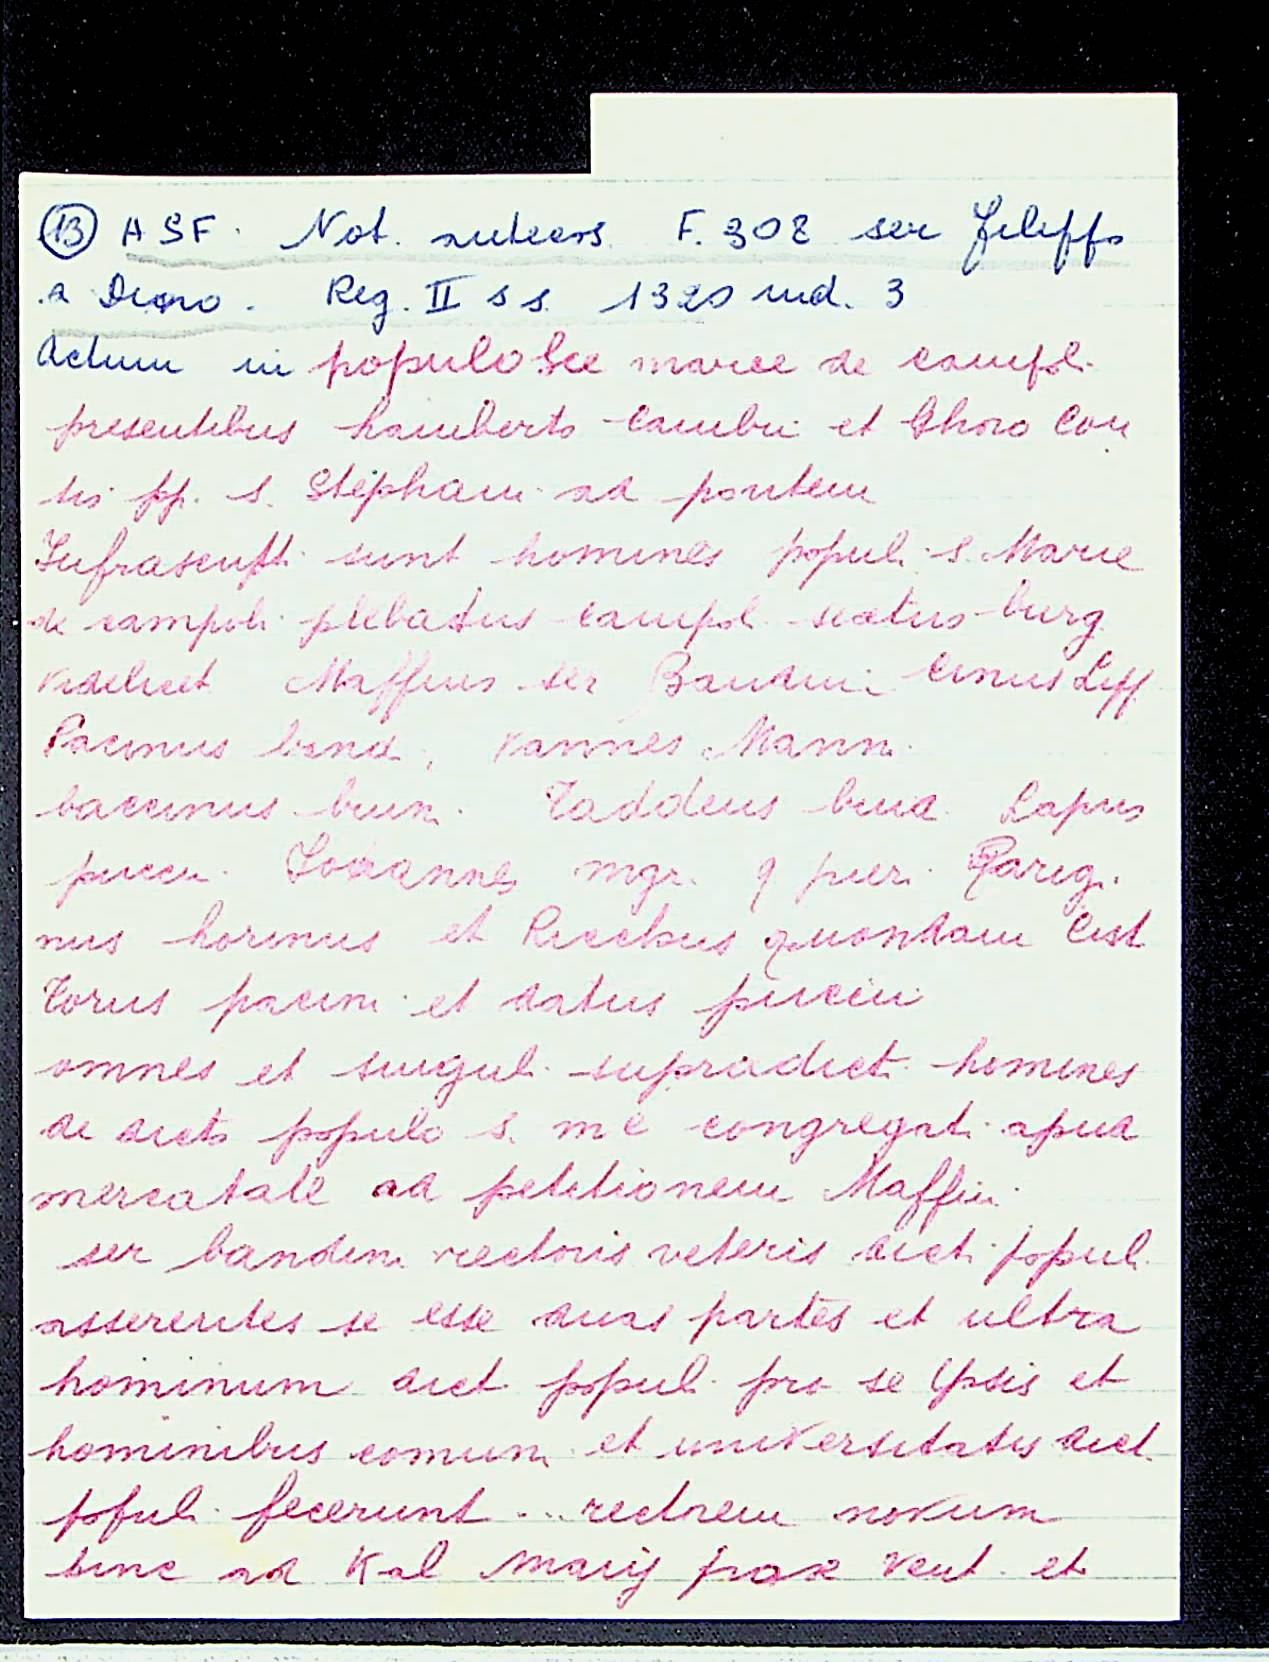 (13) ASF. Not. antecos. F. 308 ser Filippo
a Dicomo. Reg. II s s. 1320 ind. 3
Actum in populo Sce marie de campol.
presentibus Lamberto Cambii et Ghoro Con
tis pp. s. Stephani ad pontem
Infrascript. sunt homines popul. s. Marie
de campoli plebatus campol. sextus burg
videlicet Maffeus ser Bandini Cinus Lipp
Pacinus bend. Vannes Mann.
baccinus brun. Taddeus bend. Lapus
pucci. Johannes mgr. q pier. Parig.
nus horinus et Ricchus quondam Cist
Torus pacin. et datus puccii
omnes et singul. supradict. homines
de dicto populo s. me congregat. apud
mercatale ad petitionem Maffei.
ser bandin. rectoris veteris dict. popul.
asserentes se esse duas partes et ultra
hominum dict. popul. pro se ipsis et
hominibus comun. et universitatis dict.
popul. fecerunt ... rectorem novum
hinc ad Kal maij prox vent. et